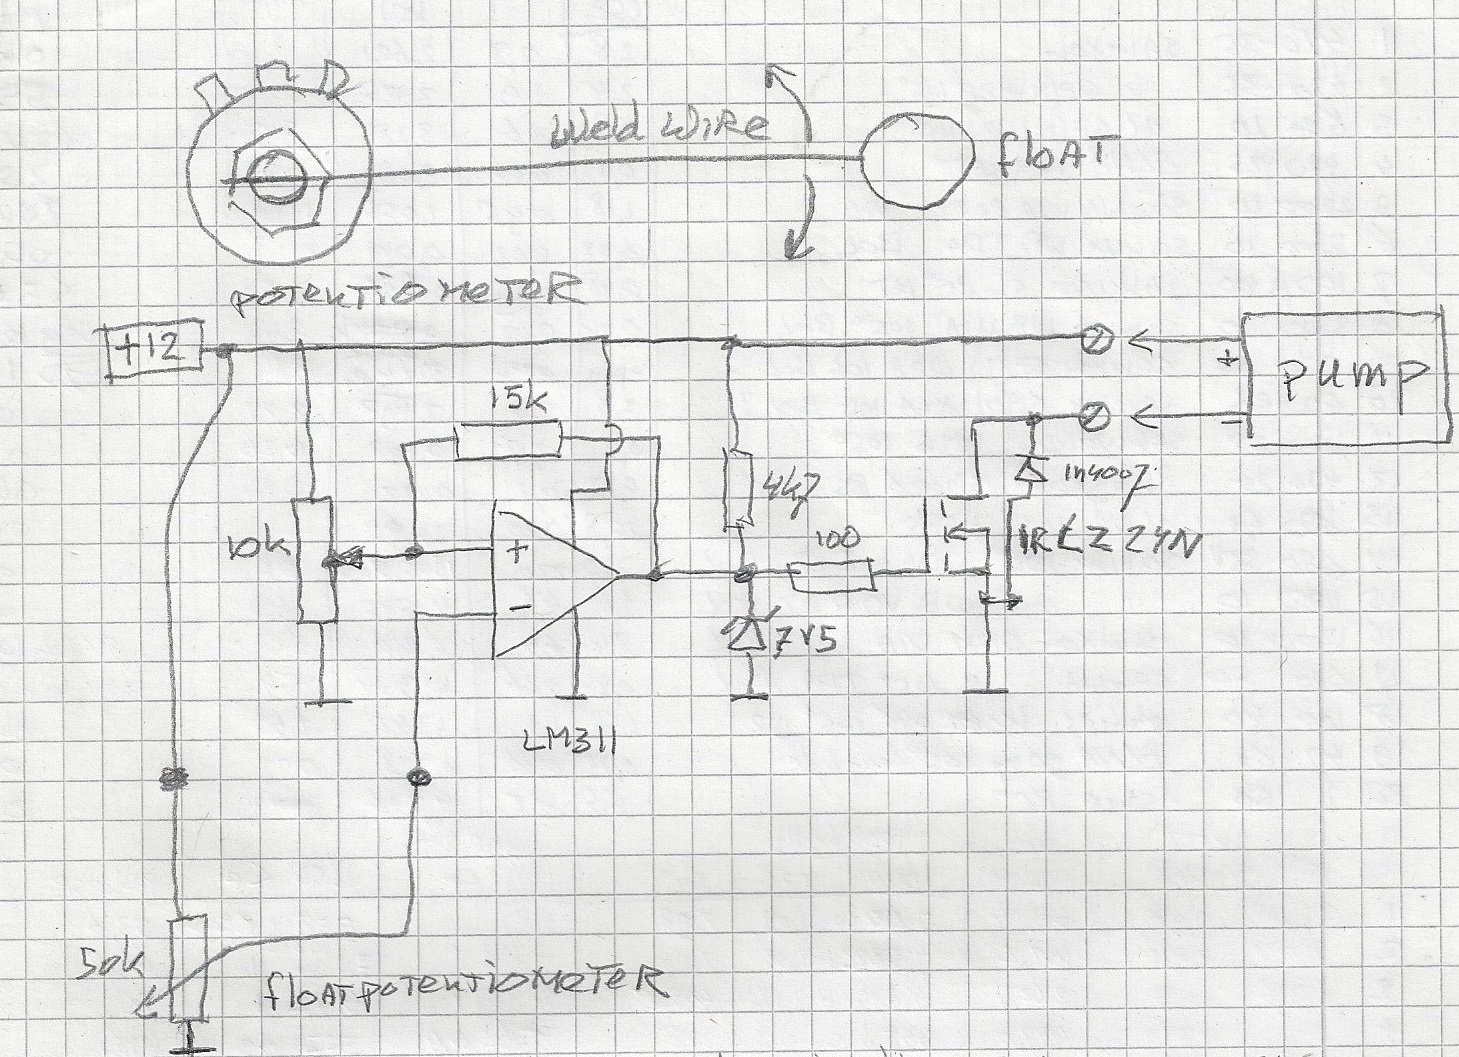 weld wire
float
potentiometer
+12
pump
+
-
15k
4k7
1n4007
10k
+
-
100
IRLZ24N
7V5
LM311
50k
floatpotentiometer